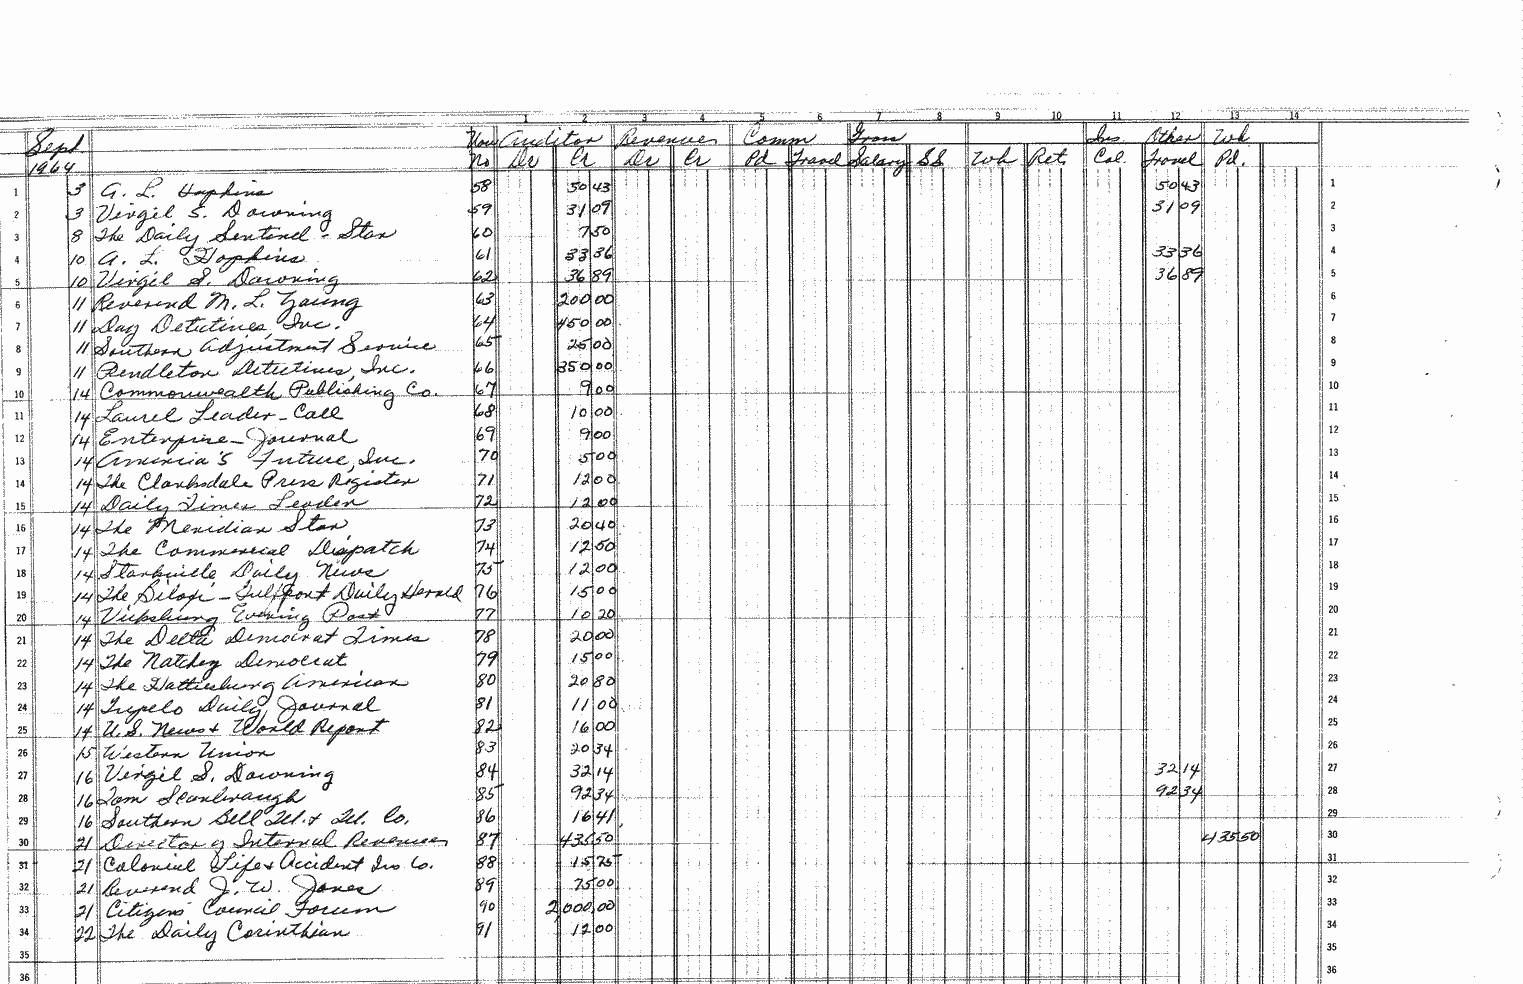 1 2 3 4 5 6 7 8 9 10 11 12 13 14
Sept Vou Auditor Revenues Comm Gross Ins Other Wh
1964 No Dr Cr Dr Cr Pd Travel Salary SS Wh Ret. Col. Travel Pd.
1 3 A. L. Hopkins 58 50 43 50 43 1
2 3 Virgil S. Downing 59 31 09 31 09 2
3 8 The Daily Sentinel - Star 60 7 50 3
4 10 A. L. Hopkins 61 33 36 33 36 4
5 10 Virgil S. Downing 62 36 89 36 89 5
6 11 Reverend M. L. Young 63 200 00 6
7 11 Day Detectives, Inc. 64 450 00 7
8 11 Southern Adjustment Service 65 25 00 8
9 11 Pendleton Detectives, Inc. 66 350 00 9
10 14 Commonwealth Publishing Co. 67 9 00 10
11 14 Laurel Leader-Call 68 10 00 11
12 14 Enterprise-Journal 69 9 00 12
13 14 America's Future, Inc. 70 5 00 13
14 14 The Clarksdale Press Register 71 12 00 14
15 14 Daily Times Leader 72 12 00 15
16 14 The Meridian Star 73 20 40 16
17 14 The Commercial Dispatch 74 12 50 17
18 14 Starkville Daily News 75 12 00 18
19 14 The Biloxi - Gulfport Daily Herald 76 15 00 19
20 14 Vicksburg Evening Post 77 10 20 20
21 14 The Delta Democrat Times 78 20 00 21
22 14 The Natchez Democrat 79 15 00 22
23 14 The Hattiesburg American 80 20 80 23
24 14 Tupelo Daily Journal 81 11 00 24
25 14 U.S. News & World Report 82 16 00 25
26 15 Western Union 83 20 34 26
27 16 Virgil S. Downing 84 32 14 32 14 27
28 16 Tom Scarbrough 85 92 34 92 34 28
29 16 Southern Bell Tel. & Tel. Co. 86 16 41 29
30 21 Director of Internal Revenues 87 435 50 435 50 30
31 21 Colonial Life & Accident Ins Co. 88 15 75 31
32 21 Reverend J. W. Jones 89 75 00 32
33 21 Citizens' Council Forum 90 2,000.00 33
34 22 The Daily Corinthian 91 12 00 34
35 35
36 36